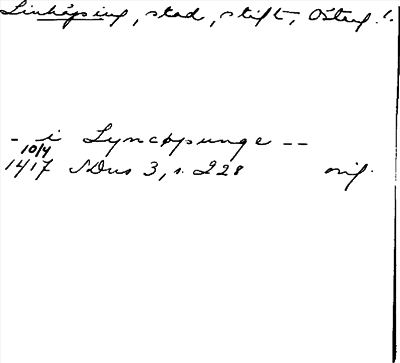 Linköping, stad, stift, Österg. l.
- i Lyncøpunge --
10/4
1417 SDns 3, s. 228 orig.